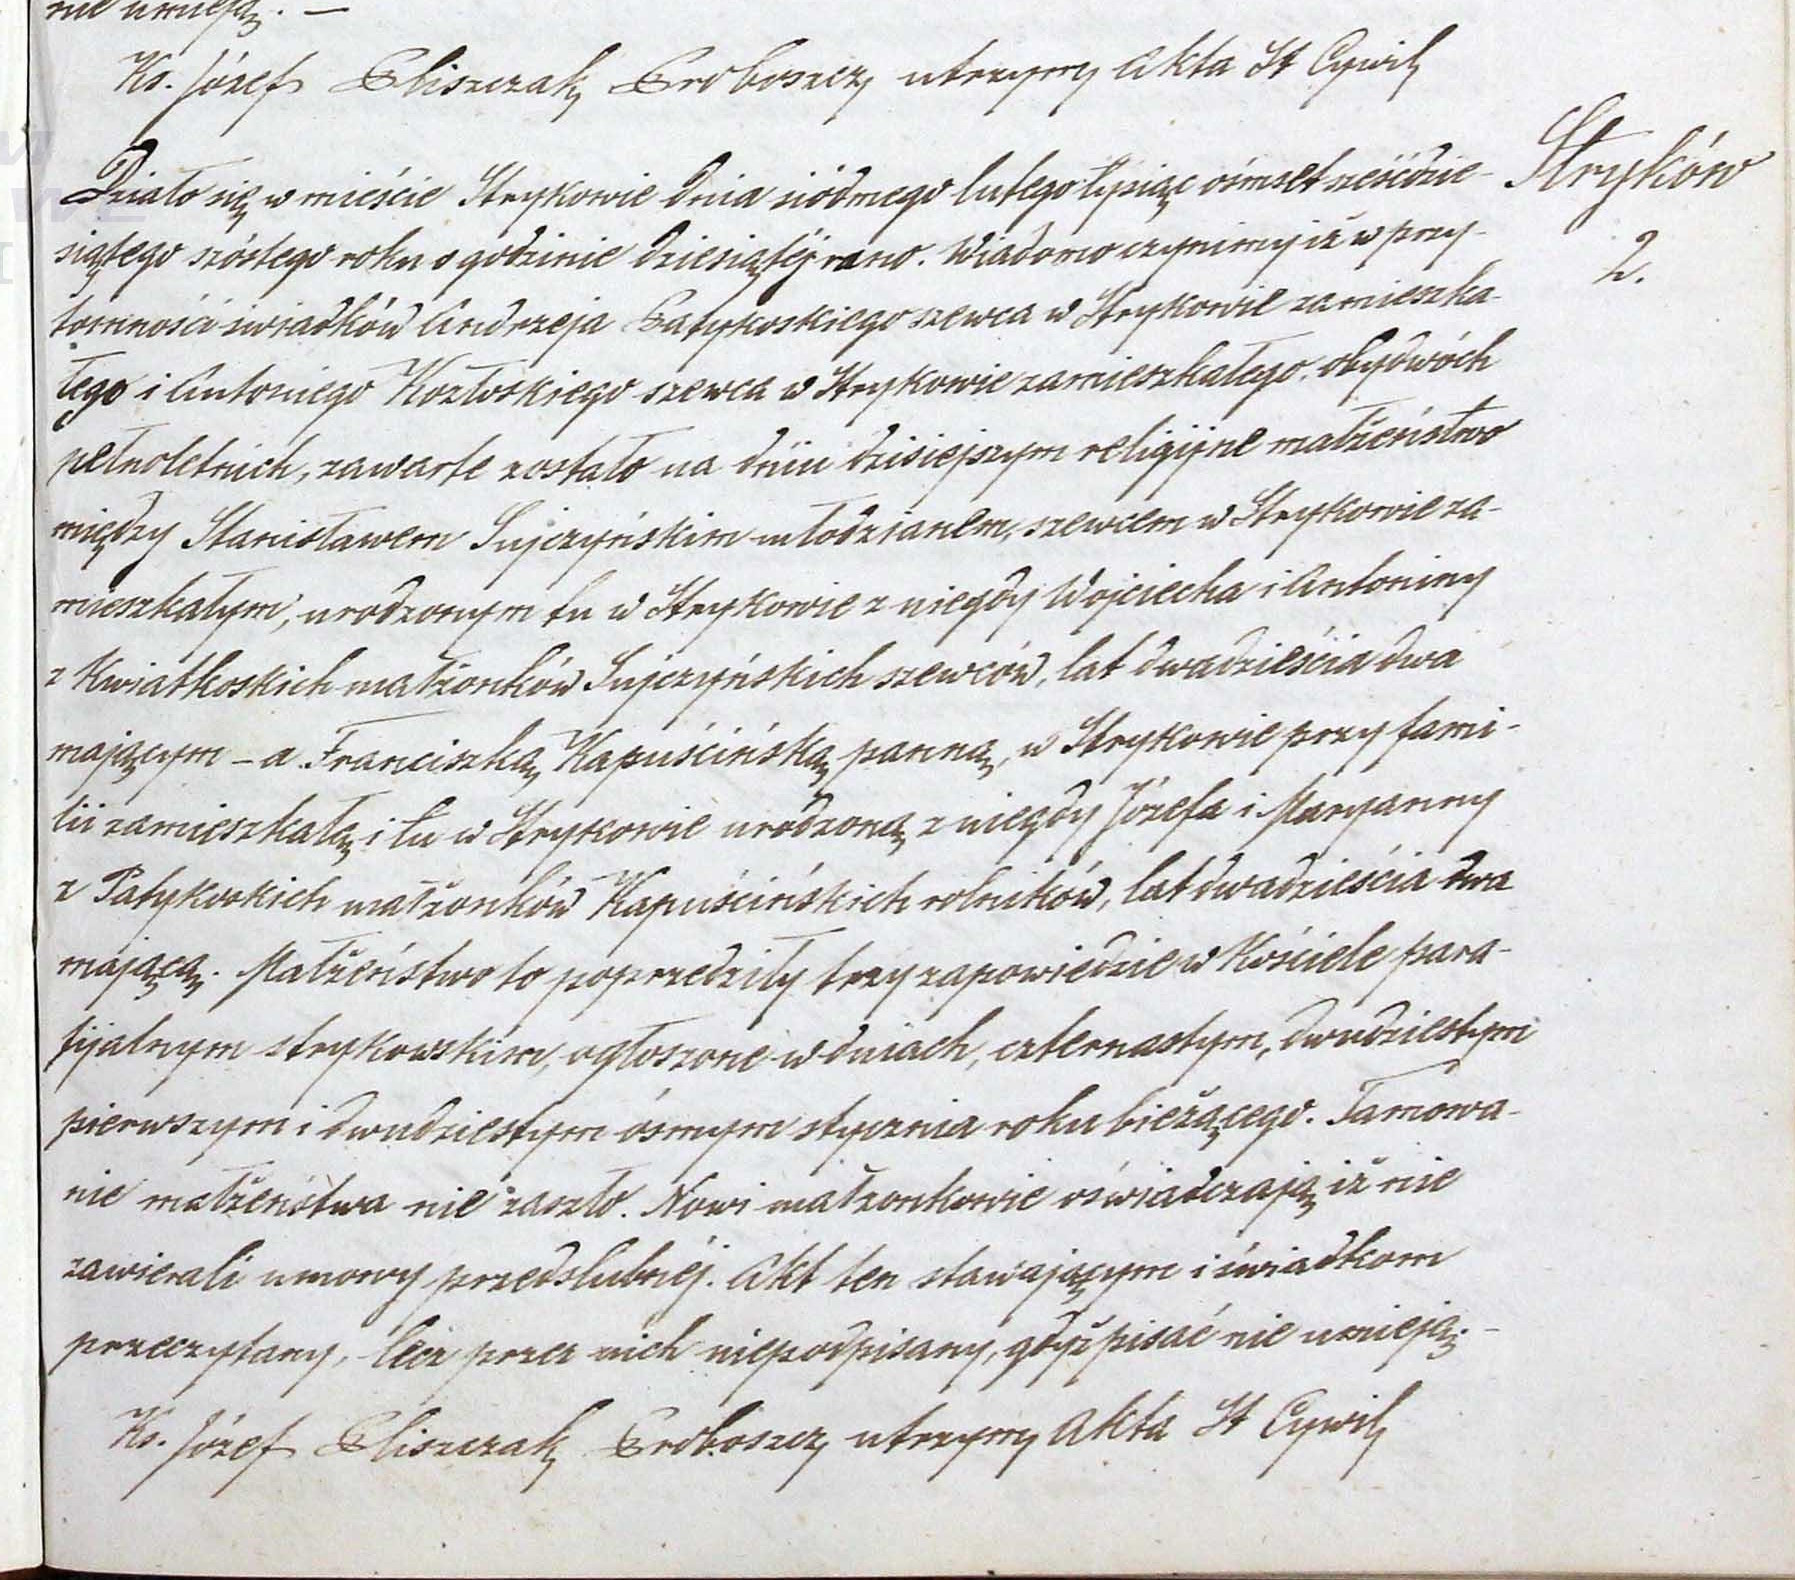 nie umieją. —
Ks. Józef Pliszczak Proboszcz utrzymy Akta St Cywil
Stryków
2.
Działo się w mieście Strykowie dnia siódmego lutego tysiąc ósmset sześćdzie-
siątego szóstego roku o godzinie dziesiątéj rano. Wiadomo czynimy iż w przy-
tomności świadków Andrzeja Patykoskiego szewca w Strykowie zamieszka-
łego i Antoniego Kozłoskiego szewca w Strykowie zamieszkałego, obydwóch
pełnoletnich, zawarte zostało na dniu dzisiejszym religijne małżeństwo
między Stanisławem Sujczyńskim młodzianem, szewcem w Strykowie za-
mieszkałym, urodzonym tu w Strykowie z niegdy Wojciecha i Antoniny
z Kwiatkoskich małżonków Sujczyńskich szewców, lat dwadzieścia dwa
mającym – a Franciszką Kapuścińską panną, w Strykowie przy fami-
lii zamieszkałą i tu w Strykowie urodzoną z niegdy Józefa i Maryanny
z Patykoskich małżonków Kapuścińskich rolników, lat dwadzieścia dwa
mającą. Małżeństwo to poprzedziły trzy zapowiedzie w Kościele para-
fijalnym strykowskim, ogłoszone w dniach, czternastym, dwudziestym
pierwszym i dwudziestym ósmym stycznia roku bieżącego. Tamowa-
nie małżeństwa nie zaszło. Nowi małżonkowie oświadczają iż nie
zawierali umowy przedslubnéj. Akt ten stawającym i świadkom
przeczytany, lecz przez nich niepodpisany, gdyż pisać nie umieją. –
Ks. Józef Pliszczak Proboszcz utrzymy Akta St Cywil